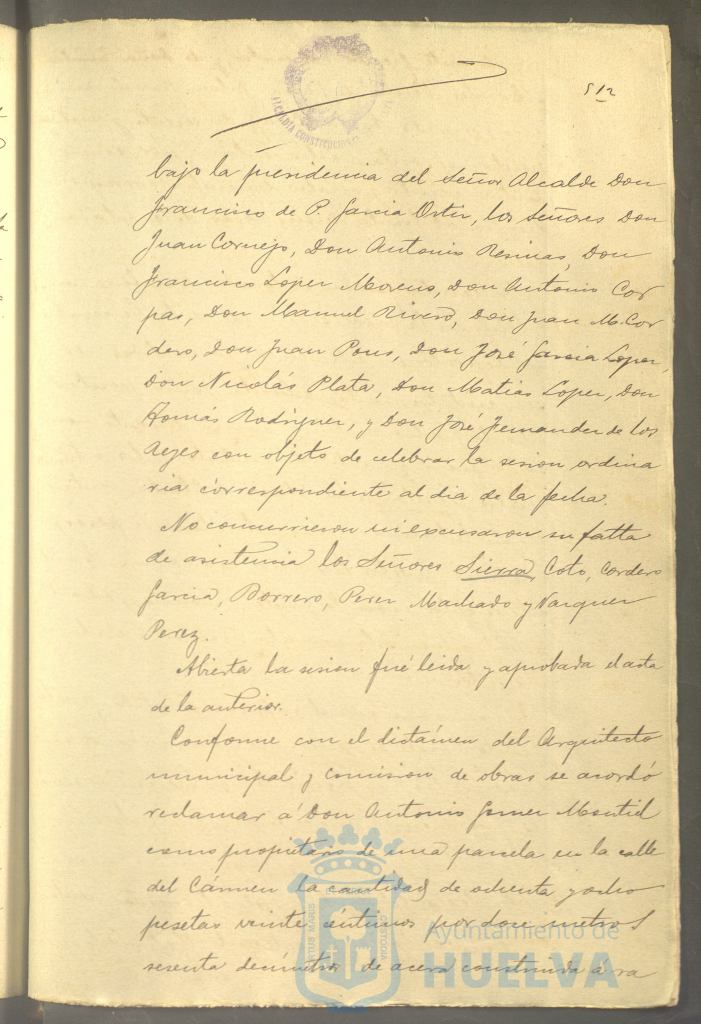 512
ALCALDIA CONSTITUCIONAL
bajo la presidencia del Señor Alcalde Don
Francisco de P. Garcia Ortiz, los Señores Don
Juan Cornejo, Don Antonio Resinas, Don
Francisco Lopez Moreno, Don Antonio Cor
pas, Don Manuel Rivero, Don Juan M. Cor
dero, Don Juan Pons, Don José Garcia Lopez,
Don Nicolás Plata, Don Matias Lopez, Don
Tomás Rodriguez, y Don José Fernandez de los
Reyes con objeto de celebrar la sesion ordina
ria correspondiente al dia de la fecha.
No concurrieron ni excusaron su falta
de asistencia los Señores Sierra, Coto, Cordero
Garcia, Borrero, Perez Machado y Vazquez
Perez.
Abierta la sesion fué leida y aprobada el acta
de la anterior.
Conforme con el dictámen del Arquitecto
municipal y comision de obras se acordó
reclamar á Don Antonio Gomez Montiel
como propietario de una parcela en la calle
del Cármen la cantidad de ochenta y ocho
pesetas veinte céntimos por doce metros
sesenta decímetros de acera construida á ra
Ayuntamiento de
HUELVA
PORTUS MARIS
CUSTODIA